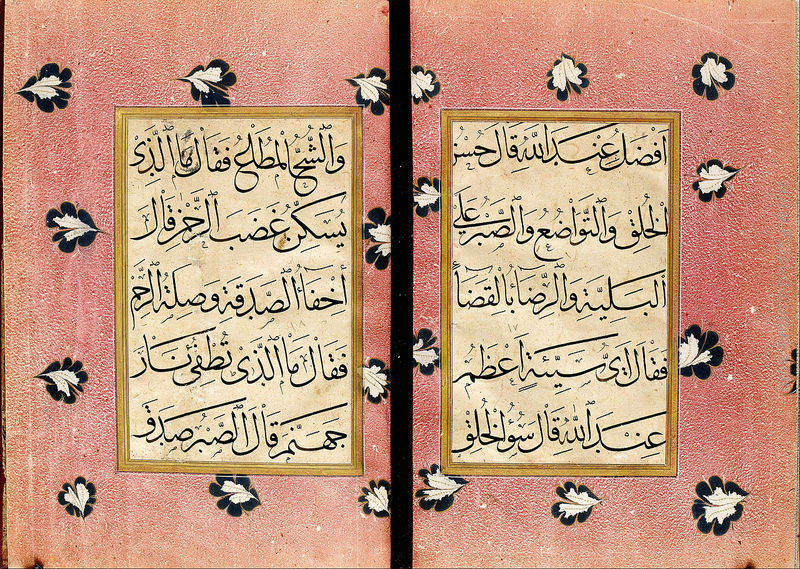 افضل عند الله قال حسن
الخلق والتواضع والصبر على
البلية والرضا بالقضاء
فقال اى سيئة اعظم
عند الله قال سوء الخلق
والشح المطلع فقال ما الذى
يسكن غضب الرحمن قال
اخفاء الصدقة وصلة الرحم
فقال ما الذى تطفئ نار
جهنم قال الصبر صدق